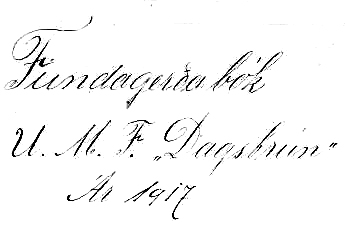 Fundagerða bók
U. M. F. „Dagsbrún“
Ár 1917